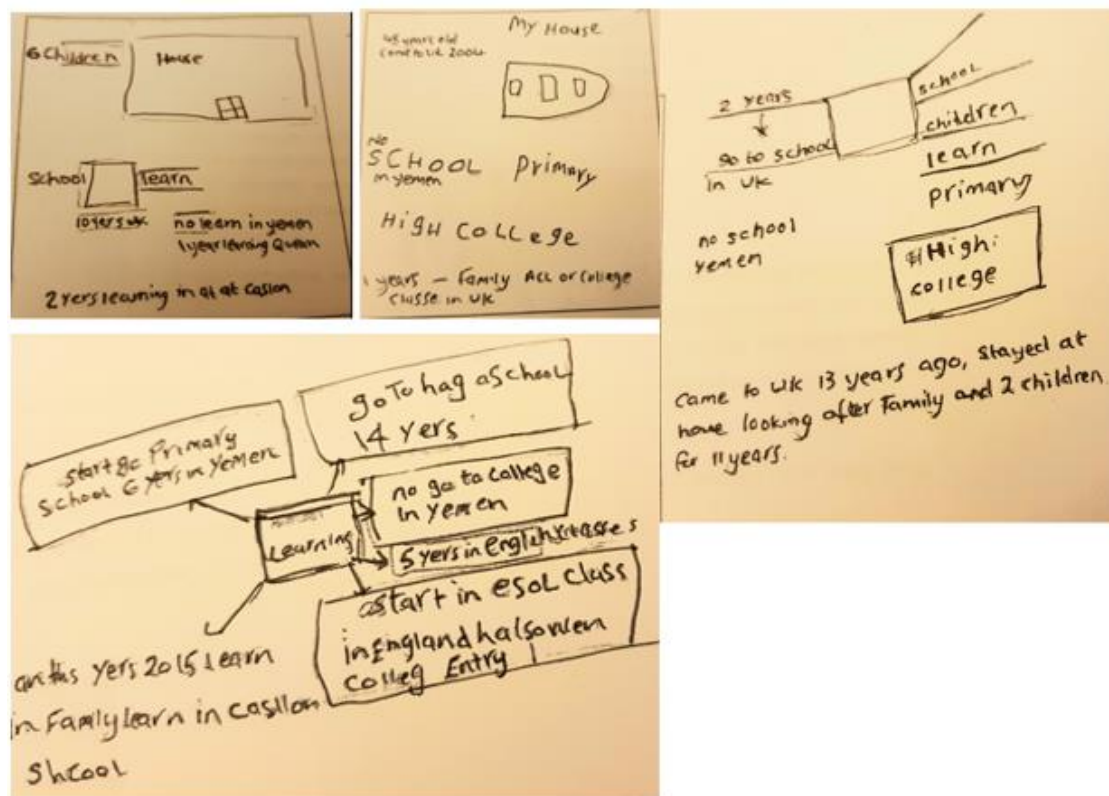 6 Children
House
School
learn
10 yers uk
no learn in yemen
1 year learning Queen
2 yers learning in at at Caslon
My House
come to uk 2004
NO
SCHOOL
in yemen
Primary
HIGH COLLege
1 years – Family ALL or College
classe in UK
2 years
go to school
in UK
school
children
learn
primary
no school
yemen
High:
college
came to UK 13 years ago, stayed at
home looking after Family and 2 children
for 11 years.
start go Primary
School 6 yers in Yemen
go To hag a School
14 yers
no go to college
in yemen
Learning
5 yers in English classes
start in esoL class
in England halsowen
colleg Entry
yers 2015 learn
in Family learn in casllon
shcool